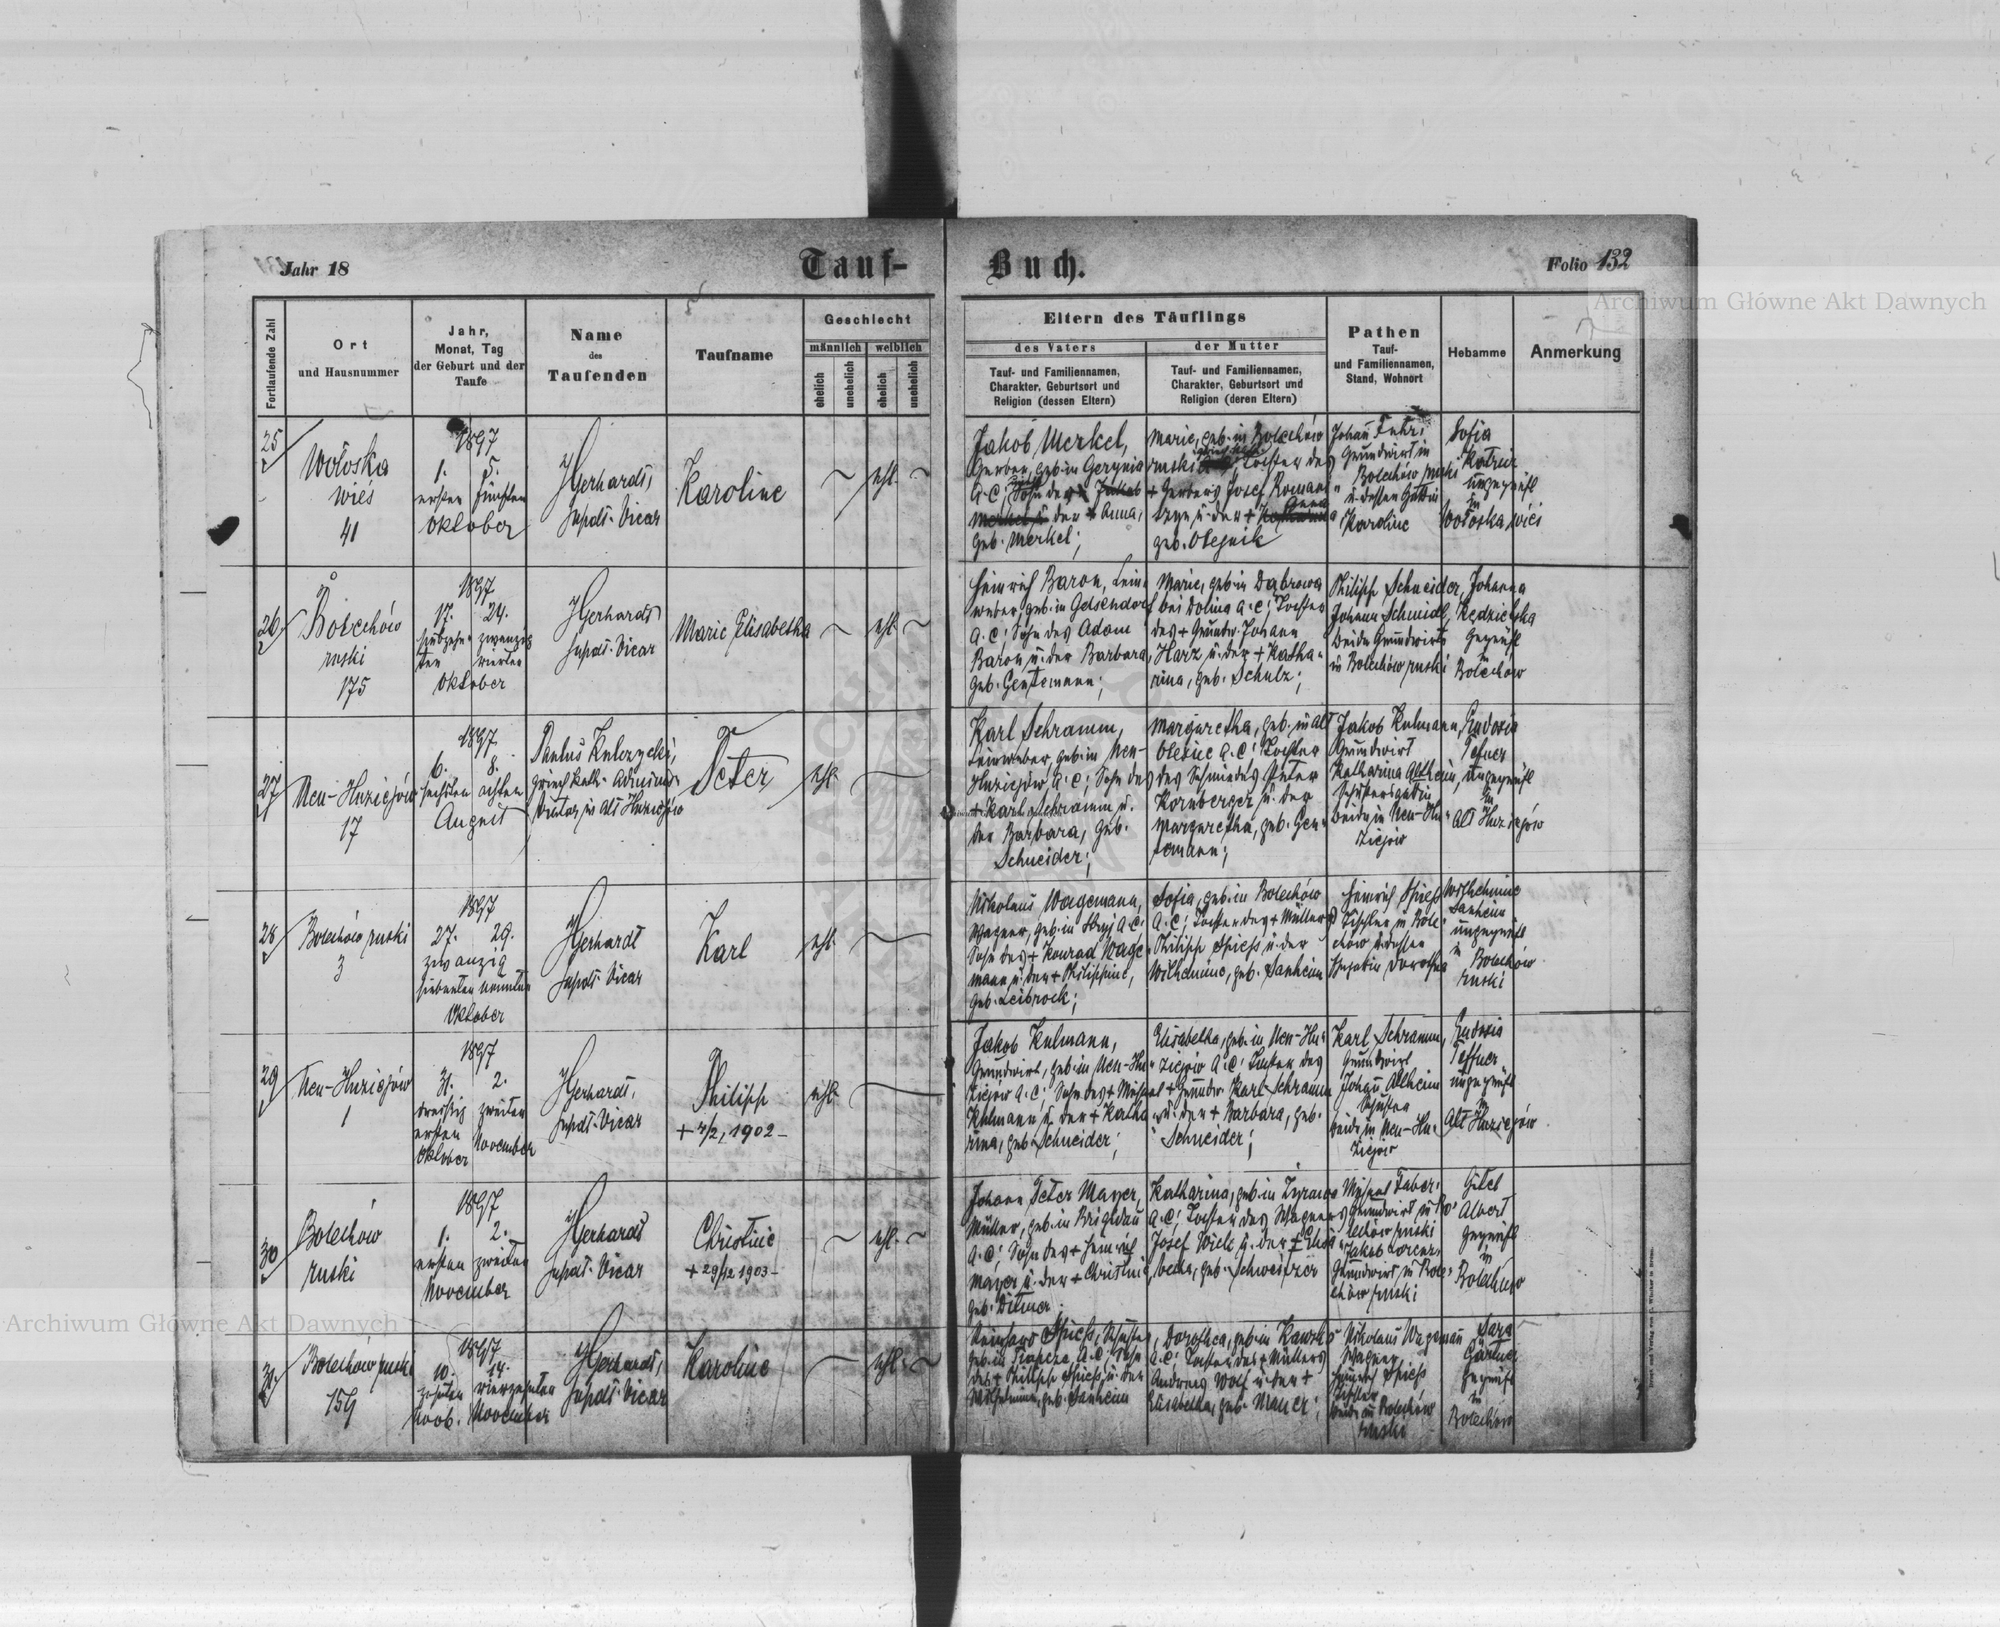 Jahr 18
Tauf-
Buch.
Folio 132
Archiwum Główne Akt Dawnych
Fortlaufende Zahl
Ort
und Hausnummer
Jahr,
Monat, Tag
der Geburt und der
Taufe
Name
des
Taufenden
Taufname
Geschlecht
männlich weiblich
ehelich unehelich ehelich unehelich
Eltern des Täuflings
des Vaters
Tauf- und Familiennamen,
Charakter, Geburtsort und
Religion (dessen Eltern)
der Mutter
Tauf- und Familiennamen,
Charakter, Geburtsort und
Religion (deren Eltern)
Pathen
Tauf-
und Familiennamen,
Stand, Wohnort
Hebamme
Anmerkung
25
Wołoska
wieś
41
1897
1. 5.
ersten fünften
Oktober
Gerhardt,
Supdt. Vicar
Karoline
ehl.
Jakob Merkel,
Gerber, geb. in
A.C; Sohn des Jakob
Merkel u. der + Anna,
geb. Merkel;
Marie, geb. in Bolechów
ruski Tochter des
+ Gerbers Josef Roman
u. der + Anna
geb. Olejnik
Johann
Grundwirt in
Bolechów ruski
u. dessen Gattin
Karoline
Sofia
ungeprüft
in
Wołoska wieś
26
Bolechów
ruski
175
1897
17. 24.
siebzehn- zwanzig
ten vierten
Oktober
Gerhardt
Supdt. Vicar
Marie Elisabetha
ehl.
Heinrich Baron, Lein-
weber, geb. in Gelsendorf
A.C; Sohn des Adam
Baron u. der Barbara,
geb. Gentemann;
Marie, geb. in Dąbrowa
bei Dolina A.C; Tochter
des + Grundw. Johann
Harz u. der + Katha-
rina, geb. Schulz;
Philipp Schneider,
Johann Schmidt,
beide Grundwirte
in Bolechów ruski
Johanna
geprüft
in
Bolechów
27
Neu-Huziejów
17
1897
6. 8.
sechsten achten
August
in Alt Huziejów
Peter
ehl.
Karl Schramm,
Leinweber, geb. in Neu-
Huziejów A.C; Sohn des
+ Karl Schramm u.
der Barbara, geb.
Schneider;
Margaretha, geb. in Alt
A.C; Tochter
des Schmiedes Peter
Kornberger u. der
Margaretha, geb. Gen-
temann;
Jakob Kulmann,
Grundwirt
Katharina Altheim,
Schustersgattin
beide in Neu-Hu-
ziejów
Eudoxia
ungeprüft
in
Alt Huziejów
28
Bolechów ruski
3
1897
27. 29.
zwanzig
siebenten neunten
Oktober
Gerhardt
Supdt. Vicar
Karl
ehl.
Nikolaus Wagemann,
Wagner, geb. in Stryj A.C;
Sohn des + Konrad Wage-
mann u. der + Philippine,
geb. Leibrock;
Sofia, geb. in Bolechów
A.C; Tochter des + Müllers
Philipp Spiess u. der
Wilhelmine, geb. Sanheim
Heinrich Spiess
Tischler in Bole-
chów u. dessen
Dorothea
Wilhelmine
Sanheim
ungeprüft
in Bolechów
ruski
29
Neu-Huziejów
1
1897
31. 2.
dreissig zweiten
ersten
Oktober November
Gerhardt,
Supdt. Vicar
Philipp
+ 7/2, 1902 -
ehl.
Jakob Kulmann,
Grundwirt, geb. in Neu-Hu-
ziejów A.C; Sohn des + Michael
Kulmann u. der + Katha-
rina, geb. Schneider;
Elisabetha, geb. in Neu-Hu-
ziejów A.C; Tochter des
+ Grundw. Karl Schramm
u. der + Barbara, geb.
Schneider;
Karl Schramm,
Grundwirt
Johann Altheim
Schuster
beide in Neu-Hu-
ziejów
Eudoxia
ungeprüft
in
Alt Huziejów
30
Bolechów
ruski
1897
1. 2.
ersten zweiten
November
Gerhardt
Supdt. Vicar
Christine
+ 29/12 1903 -
ehl.
Johann Peter Mayer,
Müller, geb. in Brigidau
A.C; Sohn des + Heinrich
Mayer u. der + Christine
geb. Ditmer;
Katharina, geb. in
A.C; Tochter des Wagners
Josef u. der + Elisa-
betha, geb. Schweitzer
Michael Faber,
Grundwirt in Bo-
lechów ruski
Jakob Lorenz,
Grundwirt, in Bole-
chów ruski
Gitel
Albert
geprüft
in
Bolechów
31
Bolechów ruski
159
1897
10. 14.
zehnten vierzehnten
Novb. November
Gerhardt,
Supdt. Vicar
Karoline
ehl.
Reinhard Spiess, Schuster,
geb. in A.C; Sohn
des + Philipp Spiess u. der
Wilhelmine, geb. Sanheim
Dorothea, geb. in
A.C; Tochter des + Müllers
Andreas Wolf u. der +
Elisabetha, geb. Mauer;
Nikolaus Wagemann
Wagner
Heinrich Spiess
Tischler
beide in Bolechów
ruski
Sara
Gärtner
geprüft
in
Bolechów
Archiwum Główne Akt Dawnych